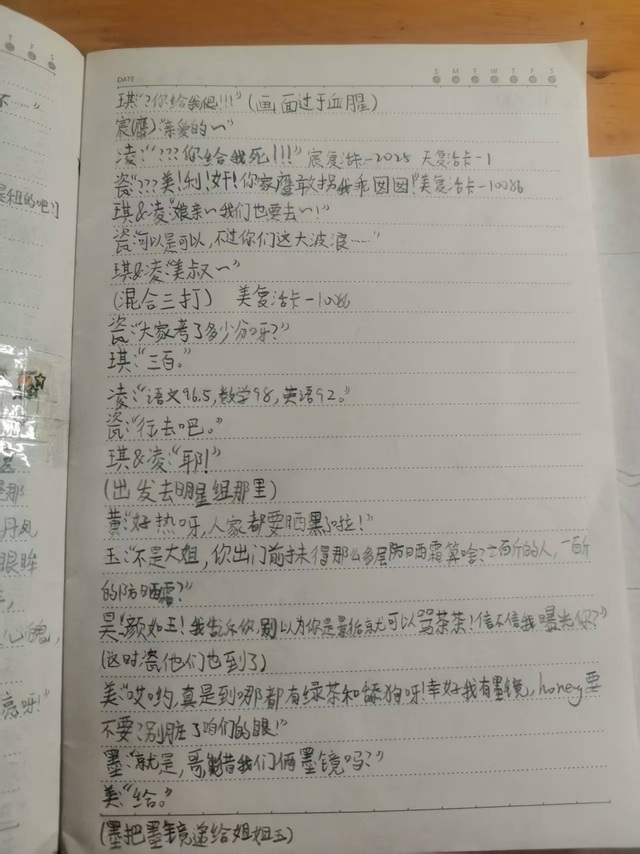 DATE
S M T W T F S
琪:"?你给我爬!!!"(画面过于血腥)
宸(鹰):"亲爱的~"
凌:"???你给我死!!!" 宸复活卡-2025 天复活卡-1
瓷:"???美!利!奸!你家鹰敢拐我乖囡囡!"美复活卡-10086
琪&凌:"娘亲~我们也要去~!"
瓷:"可以是可以,不过你们这大波浪……"
琪&凌:"美叔~"
(混合三打) 美复活卡-1086
瓷:"大家考了多少分呀?"
琪:"三百。"
凌:"语文96.5,数学98,英语92。"
瓷:"行去吧。"
琪&凌:"耶!"
(出发去明星组那里)
黄:"好热呀,人家都要晒黑了啦!"
玉:"不是大姐,你出门前抹得那么多层防晒霜算啥?二百斤的人,一百斤
的防晒霜?"
昊:"颜如玉!我告诉你,别以为你是景佑就可以骂茶茶!信不信我曝光你?"
(这时瓷他们也到了)
美:"哎哟,真是到哪都有绿茶和舔狗呀!幸好我有墨镜,honey要
不要?别脏了咱们的眼!"
墨:"就是,哥,能借我们俩墨镜吗?"
美:"给。"
(墨把墨镜递给姐姐玉)
T F S
组的吧?]
丹凤
眼眸
心魄,
亮呀!"